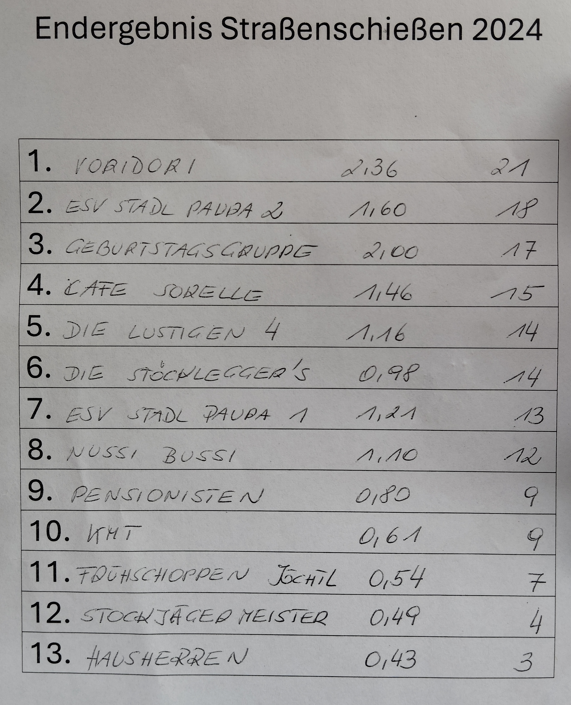 Endergebnis Straßenschießen 2024
1. VORIDORI 2,36 21
2. ESV STADL PAURA 2 1,60 18
3. GEBURTSTAGSGRUPPE 2,00 17
4. CAFE SORELLE 1,46 15
5. DIE LUSTIGEN 4 1,16 14
6. DIE STÖCKLEGGER'S 0,98 14
7. ESV STADL PAURA 1 1,21 13
8. NUSSI BUSSI 1,10 12
9. PENSIONISTEN 0,80 9
10. KMT 0,61 9
11. FRÜHSCHOPPEN JÖCHTL 0,54 7
12. STOCKJÄGERMEISTER 0,49 4
13. HAUSHERREN 0,43 3